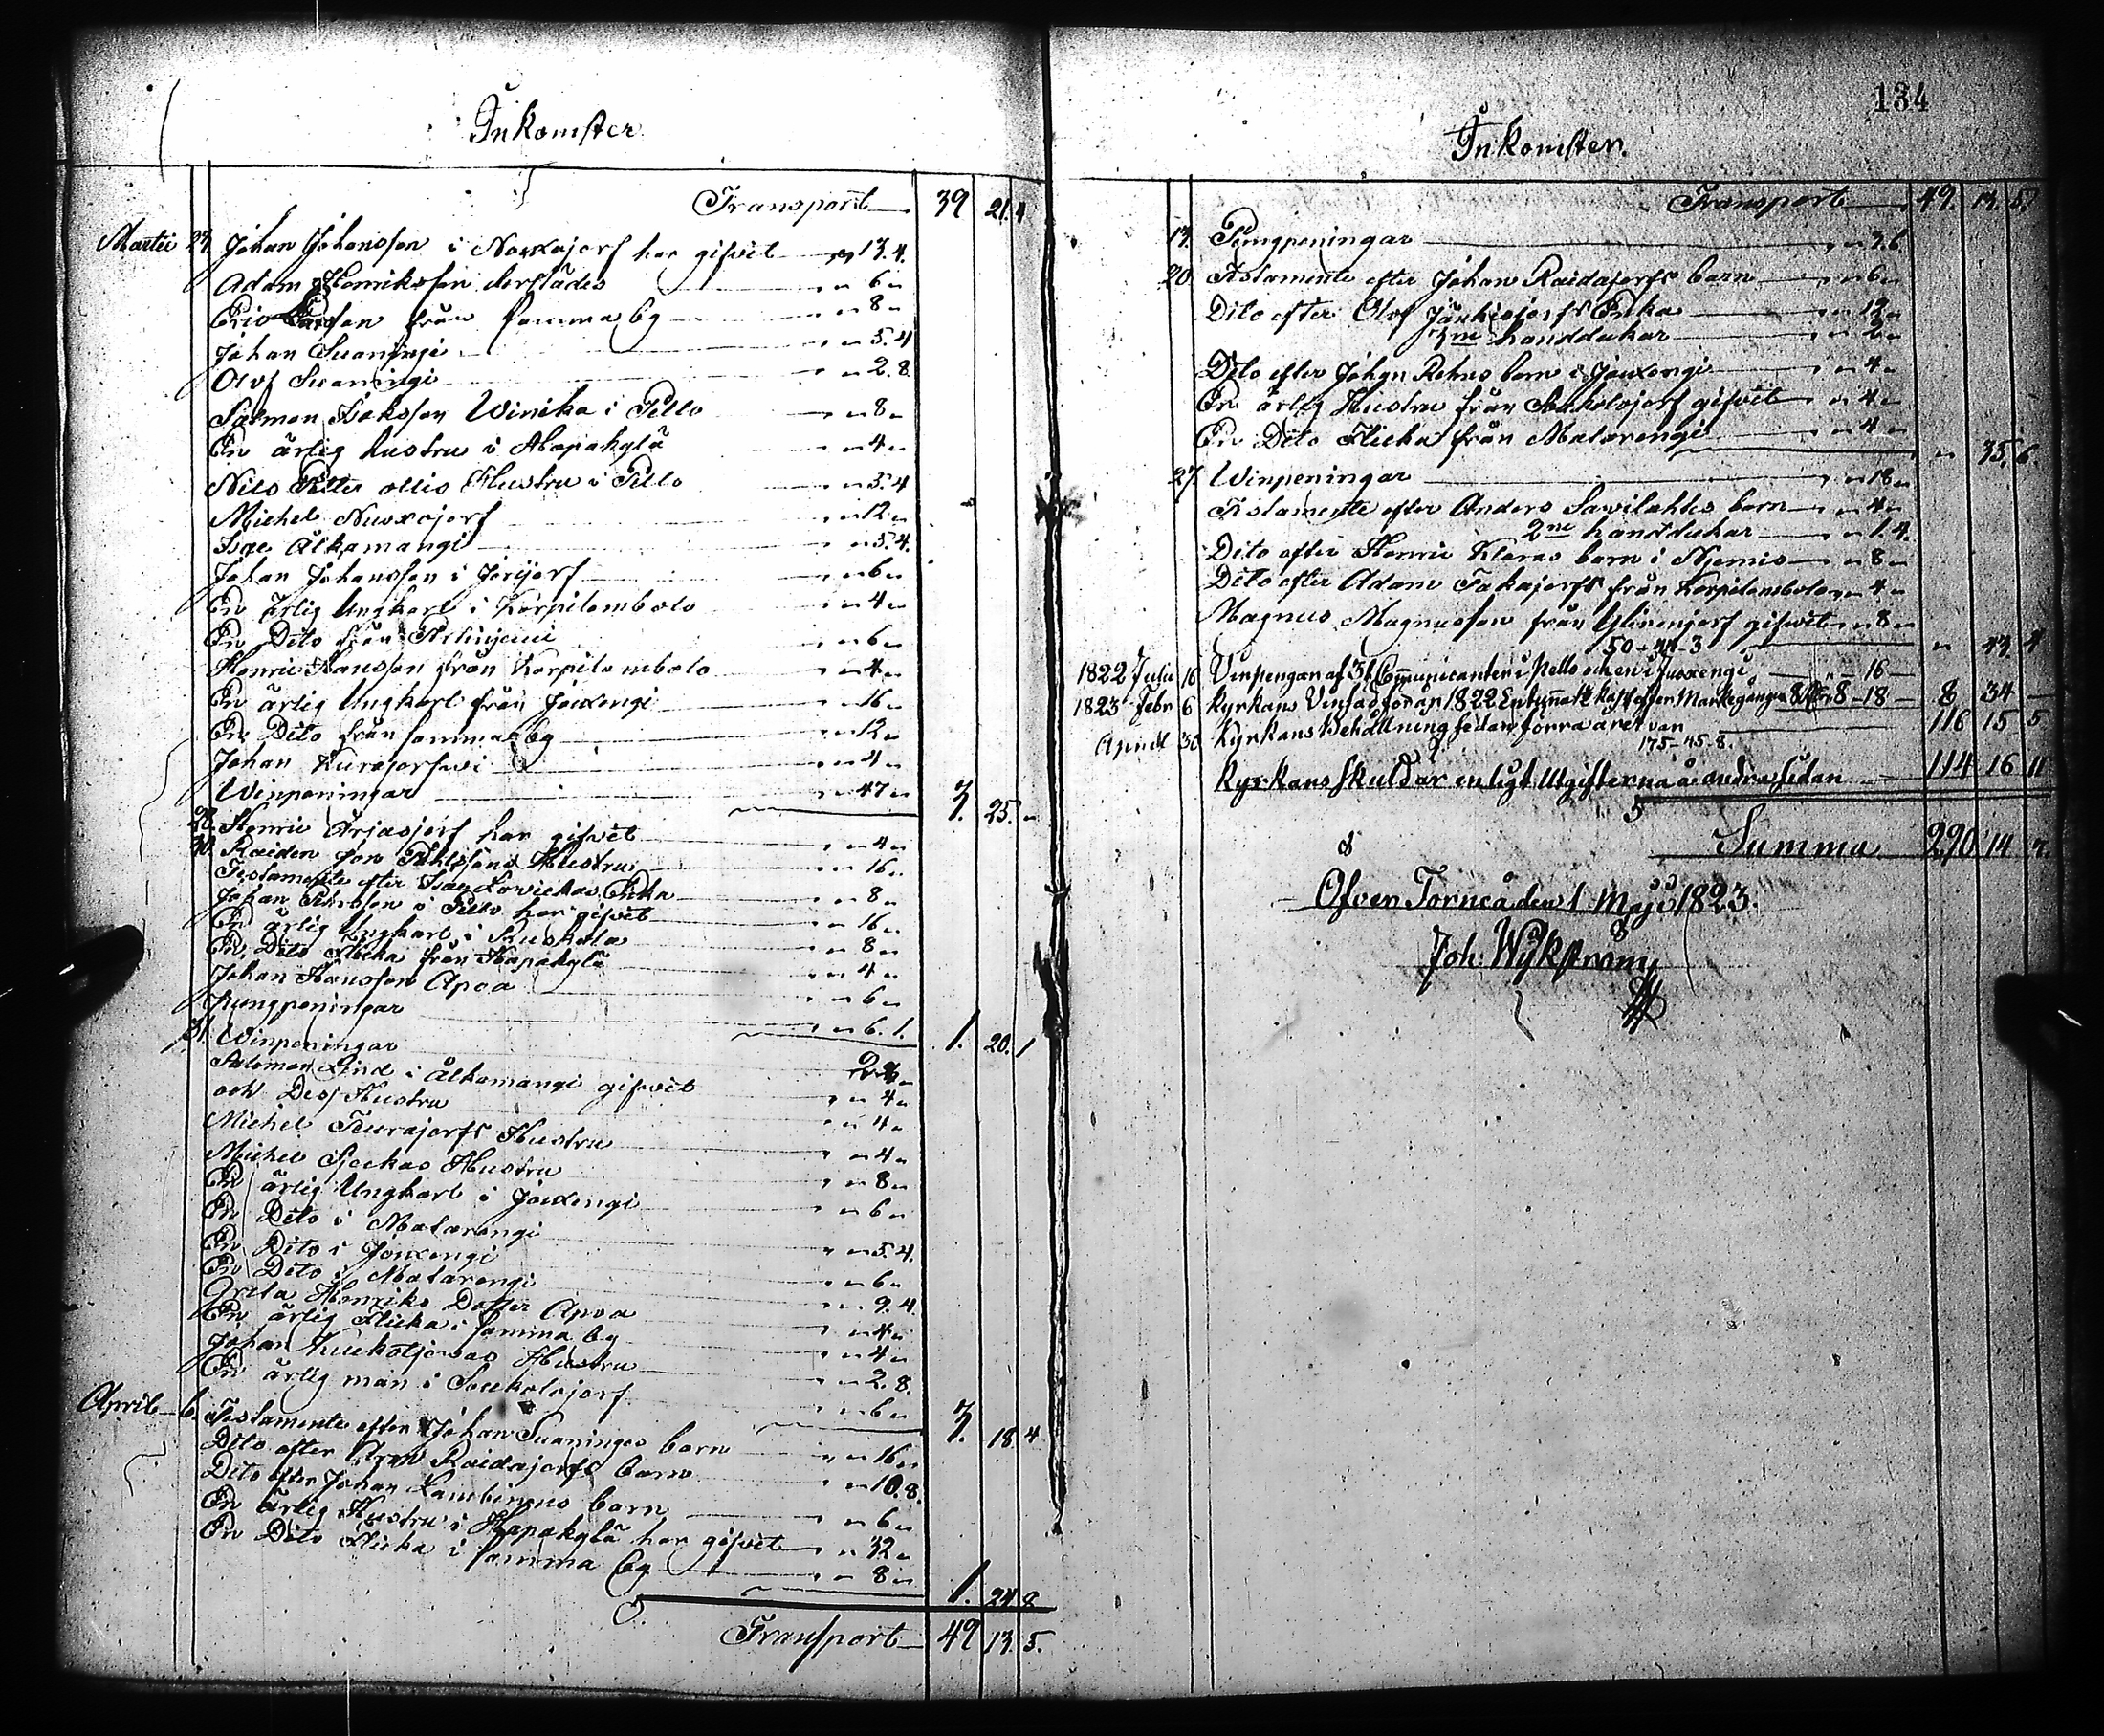 Inkomster
Transport 39 21. 4
Martii 23. Johan Johansson i Narxajerf har gifvit 13. 4.
Adam Henriksson derstädes 6
Eric från samma by 8
Johan Suaningi 5. 4
Olof Suaningi 2. 8.
Salmon Isaksson Winika i Pello 8
En ärlig hustru i Hapakylä 4
Nils Petter ollis Hustru i Pello 5. 4
Michel Nuoxojerf 12
Isac Alkamangi 5. 4.
Johan Johansson i Jerijerf 6
En ärlig Ungkarl i Korpilombolo 4
En Dito från 6
Henric Hansson från Korpilombolo 4
En ärlig Ungkarl från Jouxengi 16
En Dito från samma by 12
Johan 4
Winpeningar 47
3. 25.
28. Henric Ärjasjerf har gifvit 4
30. Raiden Jon Påhlssons Hustru 16
Testamente efter Isac Lovickas Enka 8
Johan Pehrsson i Pello har gifvit 16
En ärlig Ungkarl i Ruskola 8
En Dito Flicka från Hapakylä 4
Johan Hansson Apoa 6
Pungpeningar 6. 1.
1. 20. 1
31. Winpeningar
Salomon Lind i Alkamangi gifvit 4
och Dess Hustru 4
Michel Turajerfs Hustru 4
Michel Hustru 8
En ärlig Ungkarl i Jouxengi 6
En Dito i Matarengi 5. 4.
En Dito i Jouxengi 6
En Dito i Matarengi 9. 4.
Greta Henriks Dotter Apoa 4
En ärlig Flicka i samma by 4
Johan Hustru 2. 8.
En ärlig man i Soukolojerf 6
3. 18. 4
April 6. Testamente efter Johan Suaningis barn 16
Dito efter Raidajerfs barn 10. 8.
Dito efter Johan barn 6
En ärlig Hustru i Hapakylä har gifvit 32
En Dito Flicka i samma by 8
1. 24 8
Transport 49 13. 5.
134
Inkomster.
Transport 49. 13. 5.
13. Pungpeningar 3. 6
20. Testamente efter Johan Raidajerfs barn 6
Dito efter Olof Jänkisjerfs Enka 12
3ne handdukar 2
Dito efter Johan Rehns barn i Jouxengi 4
En ärlig Hustru från Soukolojerf gifvit 4
En Dito Flicka från Matarengi 4
35. 6.
27. Winpeningar 18
Testamente efter Anders Savilahtis barn 4
2ne handdukar 1. 4.
Dito efter Henric Klaras barn i Njemis 8
Dito efter Adam Takajerfs från Korpilombolo 4
Magnus Magnusson från gifvit 8
50-44-3 43 4
1822 Julii 16 Vinpengar af 31 Communicanter i Pello och en i Juoxengi 16
1823 Febr 6 Kyrkans Vinsäd för år 1822 En tunna 14 kapp efter Markegången 8 8-18 8 34
Aprill 30 Kyrkans Behållning sedan förra året var 116 15 5
175-45-8.
Kyrkans skuld är enligt Utgifterna å andra sidan 114 16 11
Summa 290 14 7.
Öfver Torneå den 1 Maji 1823.
Joh: Wykström